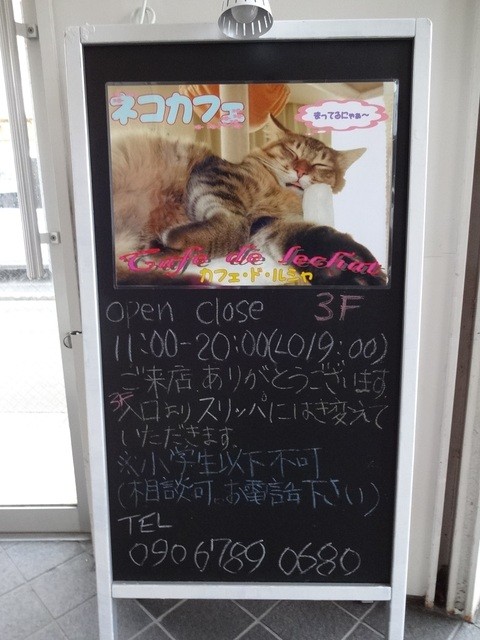 ネコカフェ
まってるにゃぁ〜
Cafe de lechat
カフェ・ド・ルシャ
open close 3F
11:00-20:00(LO19:00)
ご来店、ありがとうございます
3F入口よりスリッパにはき変えて
いただきます。
※小学生以下不可
(相談可、お電話下さい)
TEL
090 6789 0680